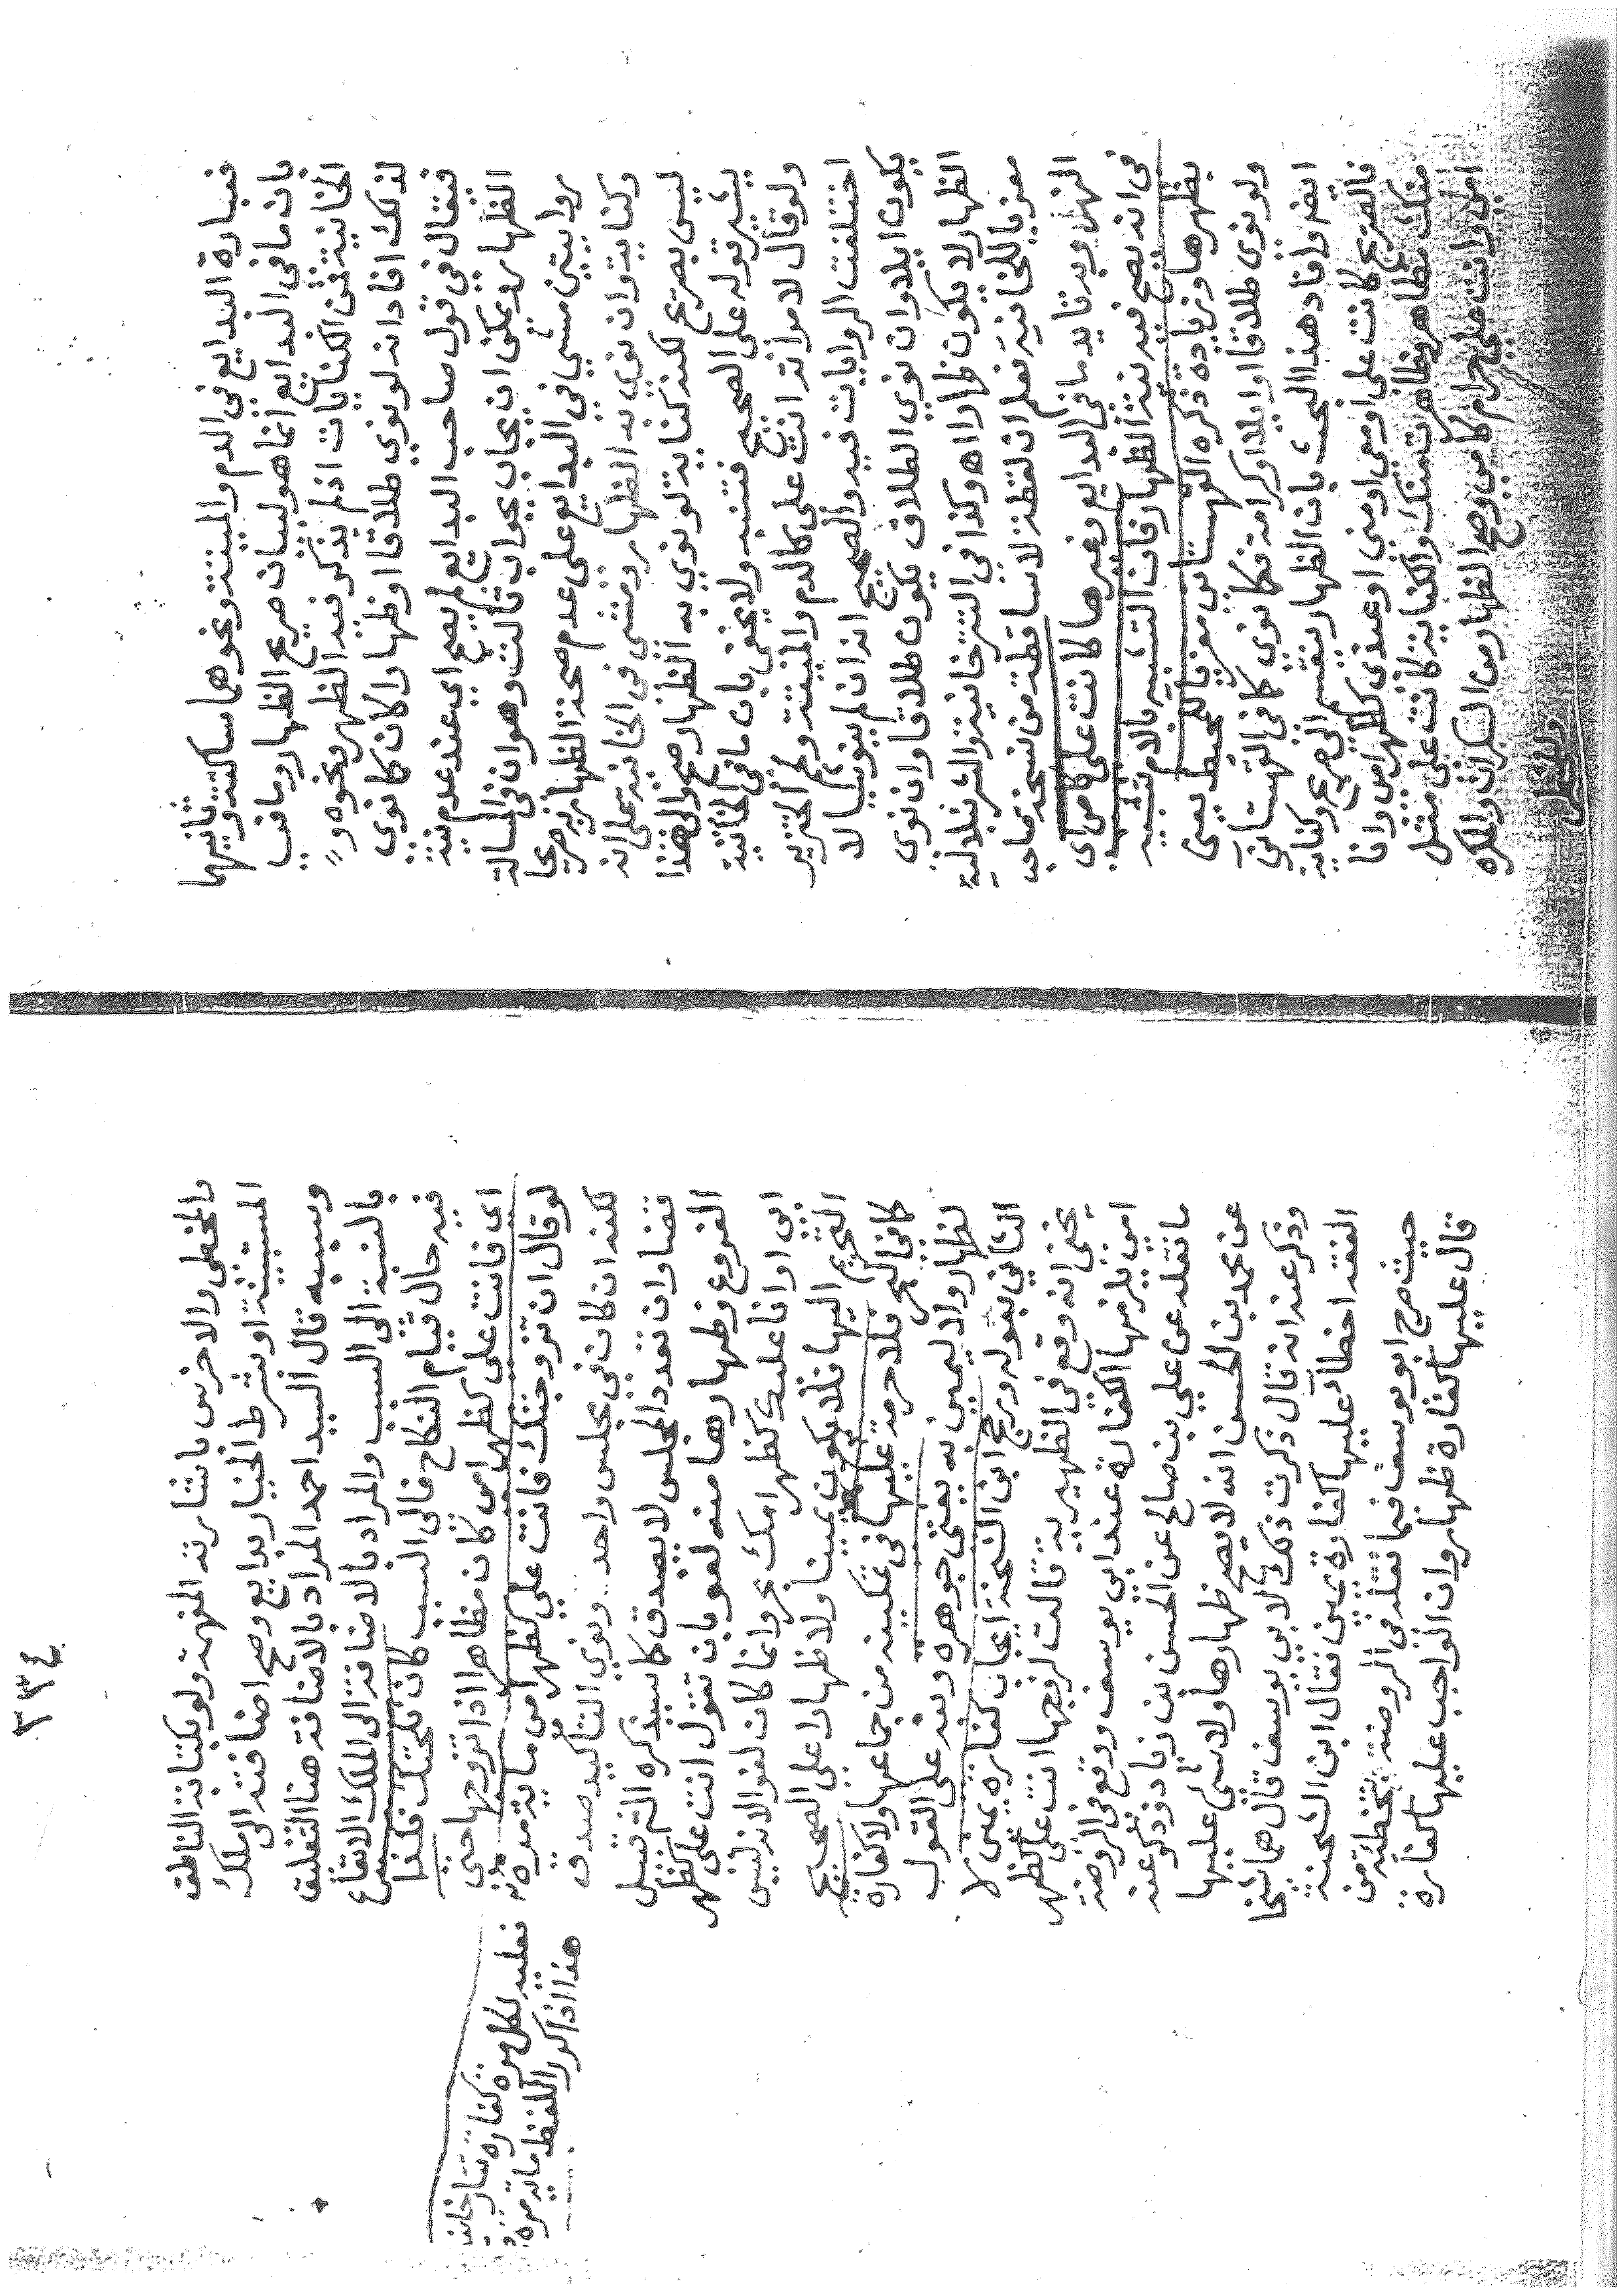 ٢٣٤
فعبارة البدايع في الدم والميتة ونحوهما ساكتة وثانيها
بان ما في البدايع انما هو لبيان صريح الظهار وما في
الخانية من الكنايات اذ لم يذكر فيه الظهر ونحوه و
لذلك افاد انه لو نوي طلاقا او ظهارا كان كما نوي
فيقال في قول صاحب البدايع لم يصح اي عند عدم نية
الظهار ويمكن ان يجاب بجواب ثالث وهو ان في المسالة
روايتين مشي في البدايع على عدم صحة الظهار به صريحا
وكناية وان نوي به الظهار ومشى في الخانية على انه
ليس بصريح لكنه كناية لو نوي به الظهار صح والى هذا
يشير قوله على الصحيح فتنبه ولا يخفى بان ما في الخانية
ولو قال لامراته انت علي كالدم والميتة ولحم الخنزير
اختلفت الروايات فيه والصحيح انه ان لم ينو شيا لا
يكون ايلاء وان نوي الطلاق يكون طلاقا وان نوى
الظهار لا يكون ظهارا اه وكذا في التترخانية والشرنبلالية
معزيا للخانية فعلم ان لفظة لا ساقطة من نسخة صاحب
النهر وبه تايد ما في البدايع وغيرها كانت علي كامي اي
في انه يصح فيه نية الظهار فان التشبيه بالام تشبيه
بظهرها وزيادة ذكره القهستاني معزيا للمحيط يعني
ولو نوي طلاقا او ايلاء او كرامة فكما نوي كما في القهستاني
افاد هذا البحث بان الظهار ينقسم الى صريح وكناية
فالصريح كانت علي او معي او مني او عندي كظهر امي وانا
منك مظاهر وظاهرت منك والكناية كانت علي مثل
امي وانت علي حرام كامي وصح الظهار من السكران والمكره
والمخطي
والمخطي والاخرس باشارته المفهمة ولو بكتابة الناطق
المستبينة او بشرط الخيار بدايع وصح اضافته الى ملك
وسببه قال السيد احمد المراد بالاضافة هنا التعليق
بالنسبة الى السبب والمراد بالاضافة الى الملك الايقاع
فيه حال قيام النكاح فالى السبب كان نكحتك فكذا
اي فانت علي كظهر امي كان مظاهرا اذا تزوجها حتى
لو قال ان تزوجتك فانت علي كظهر امي ماية مرة
فعليه لكل مرة كفارة تتارخانية
هذا اذا كرر اللفظ ماية مرة
لكنه ان كان في مجلس واحد ونوي التاكيد صدق
قضا وان تعدد المجلس لا يصدق كما سيذكره الش قبيل
الفروع وظهارها منه لغو بان تقول انت علي كظهر
ابي او انا عليك كظهر امك بحر وانما كان لغوا لانه ليس
التحريم اليها فلا يكون يمينا ولا ظهارا على الصحيح
كما في البحر فلا حرمة عليها في تمكينه من جماعها ولا كفارة
لظهار ولا ليمين به يفتى جوهره وبه على القول
الثاني بقوله ورجح ابن الشحنة ايجاب كفارة يمين لا
يخفى انه وقع في الظهيرية قالت لزوجها انت علي كظهر
امي يلزمها الكفارة عند ابي يوسف ووقع في الروضة
ما نقله عن علي بن صالح عن الحسن بن زياد وذكر عنه
عن محمد بن الحسن انه لا يصح ظهارها ولا شي عليها
وذكر عنه انه قال ذكرت ذلك لابي يوسف قال هما شيخا
الفقه اخطا عليها كفارة يمين فقال ابن الشحنة
حيث صرح ابو يوسف فيما نقله في الروضة بتخطية من
قال عليها كفارة ظهار وان الواجب عليها كفارة